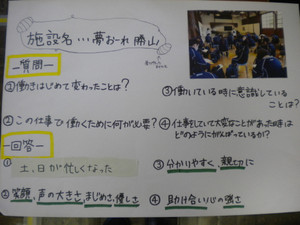 施設名…夢おーれ勝山
―質問―
①働きはじめて変わったことは?
②この仕事で働くために何が必要?
③働いている時に意識していることは?
④仕事をしていて大変なことがあった時はどのようにがんばっているか!?
―回答―
①土、日が忙しくなった
②笑顔、声の大きさ、まじめさ、優しさ
③分かりやすく親切に
④助け合い心の強さ